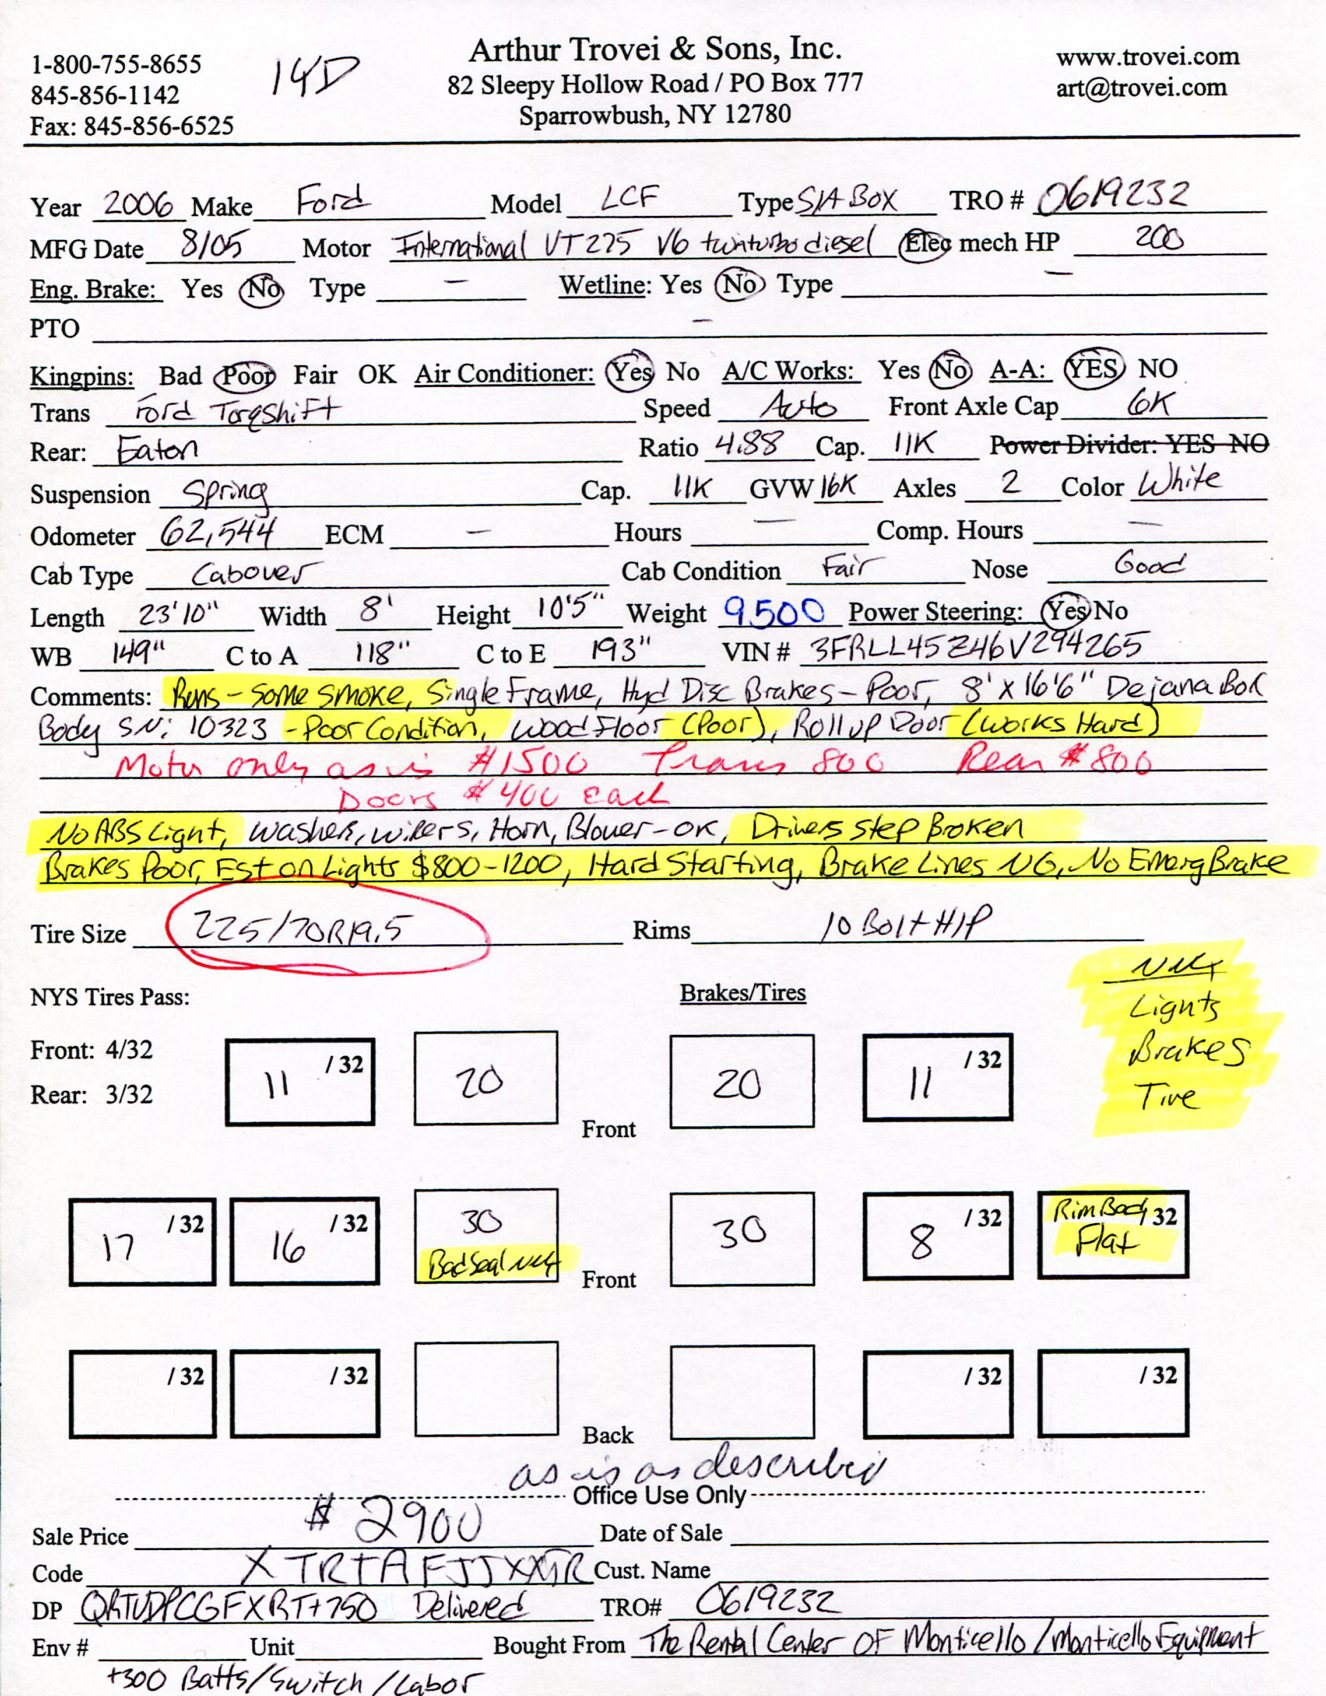 1-800-755-8655
845-856-1142
Fax: 845-856-6525
14D
Arthur Trovei & Sons, Inc.
82 Sleepy Hollow Road / PO Box 777
Sparrowbush, NY 12780
www.trovei.com
art@trovei.com
Year 2006 Make Ford Model LCF Type S/A Box TRO # 0619232
MFG Date 8/05 Motor International VT275 V6 twinturbo diesel Elec mech HP 200
Eng. Brake: Yes No Type - Wetline: Yes No Type -
PTO -
Kingpins: Bad Poor Fair OK Air Conditioner: Yes No A/C Works: Yes No A-A: YES NO
Trans Ford Torqshift Speed Auto Front Axle Cap 6K
Rear: Eaton Ratio 4.88 Cap. 11K Power Divider: YES NO
Suspension Spring Cap. 11K GVW 16K Axles 2 Color White
Odometer 62,544 ECM - Hours - Comp. Hours -
Cab Type Cabover Cab Condition Fair Nose Good
Length 23'10" Width 8' Height 10'5" Weight 9500 Power Steering: Yes No
WB 149" C to A 118" C to E 193" VIN # 3FRLL45Z46V294265
Comments: Runs - Some Smoke, Single Frame, Hyd Disc Brakes - Poor, 8' x 16'6" Dejana Box
Body SN: 10323 - Poor Condition, Wood Floor (Poor), Roll up Door (Works Hard)
Motor only as is $1500 Trans 800 Rear $800
Doors $400 each
No ABS Light, Washers, Wipers, Horn, Blower-OK, Drivers Step Broken
Brakes Poor, Est on Lights $800-1200, Hard Starting, Brake Lines NG, No Emerg Brake
Tire Size 225/70R19.5 Rims 10 Bolt H/P
NYS Tires Pass: Brakes/Tires
Front: 4/32
Rear: 3/32
Lights
Brakes
Tire
11 /32 20 Front 20 11 /32
17 /32 16 /32 30 Bad Seal Front 30 8 /32 Rim Bad, Flat 32
/32 /32 Back /32 /32
as is as described
Office Use Only
Sale Price $2900 Date of Sale
Code Cust. Name
DP QRTUDPCGFXRT+750 Delivered TRO# 0619232
Env # Unit Bought From The Rental Center OF Monticello / Monticello Equipment
+300 Batts/Switch/Labor